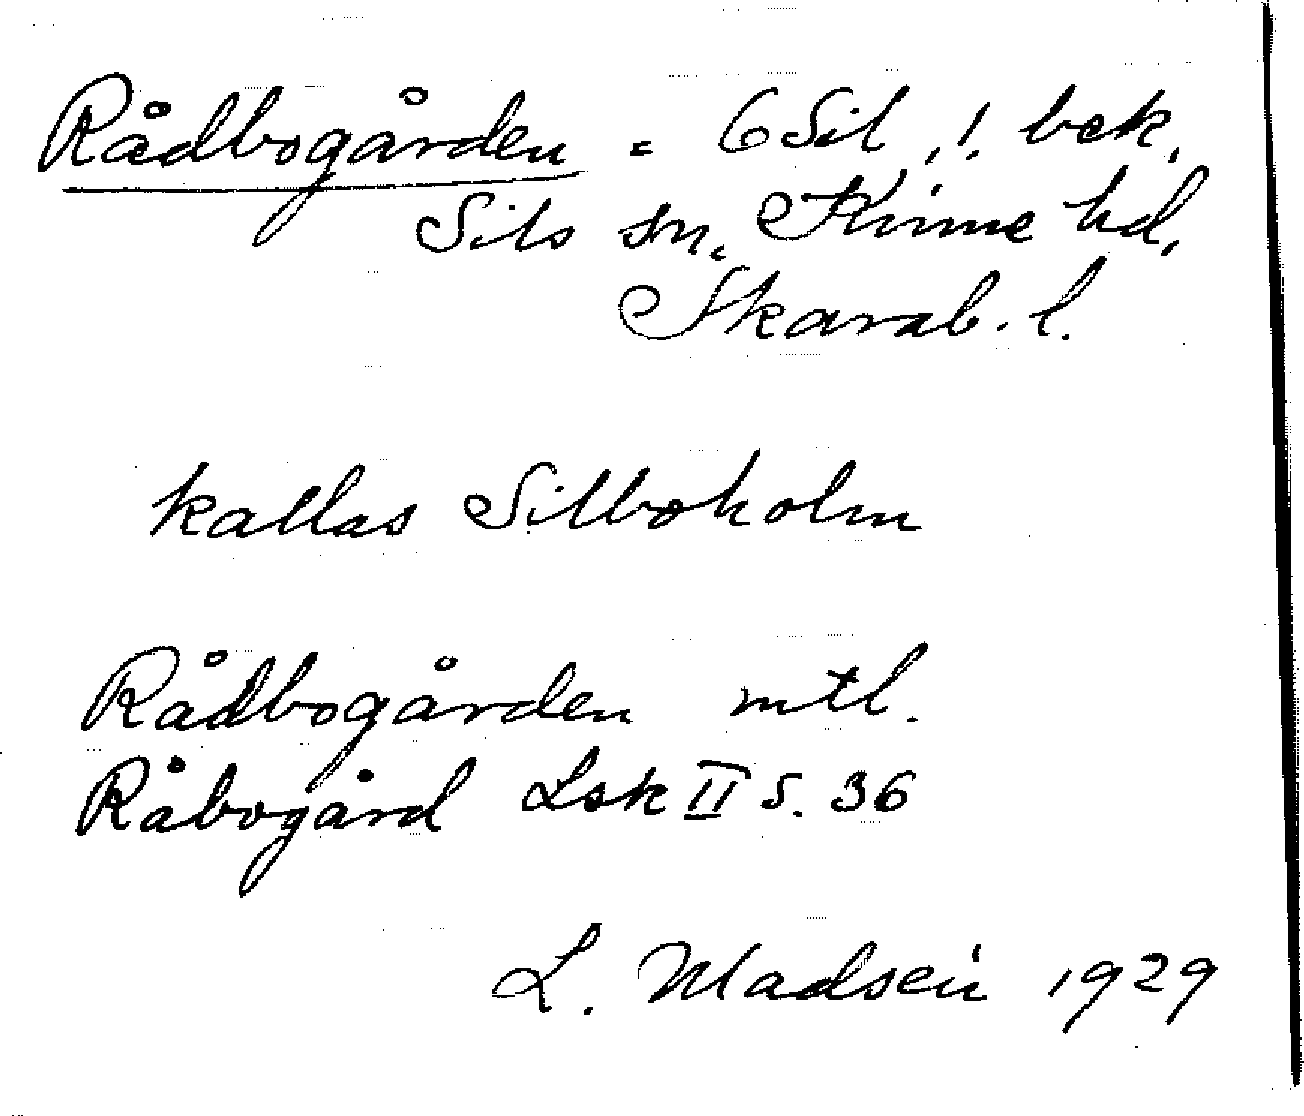 Rådbogården = 6 Sil, 1. bek.
Sils sn, Kinne hd,
Skarab. l.
kallas Silboholm
Rådbogården mtl.
Råbogård Lsk II s. 36
L. Madsén 1929